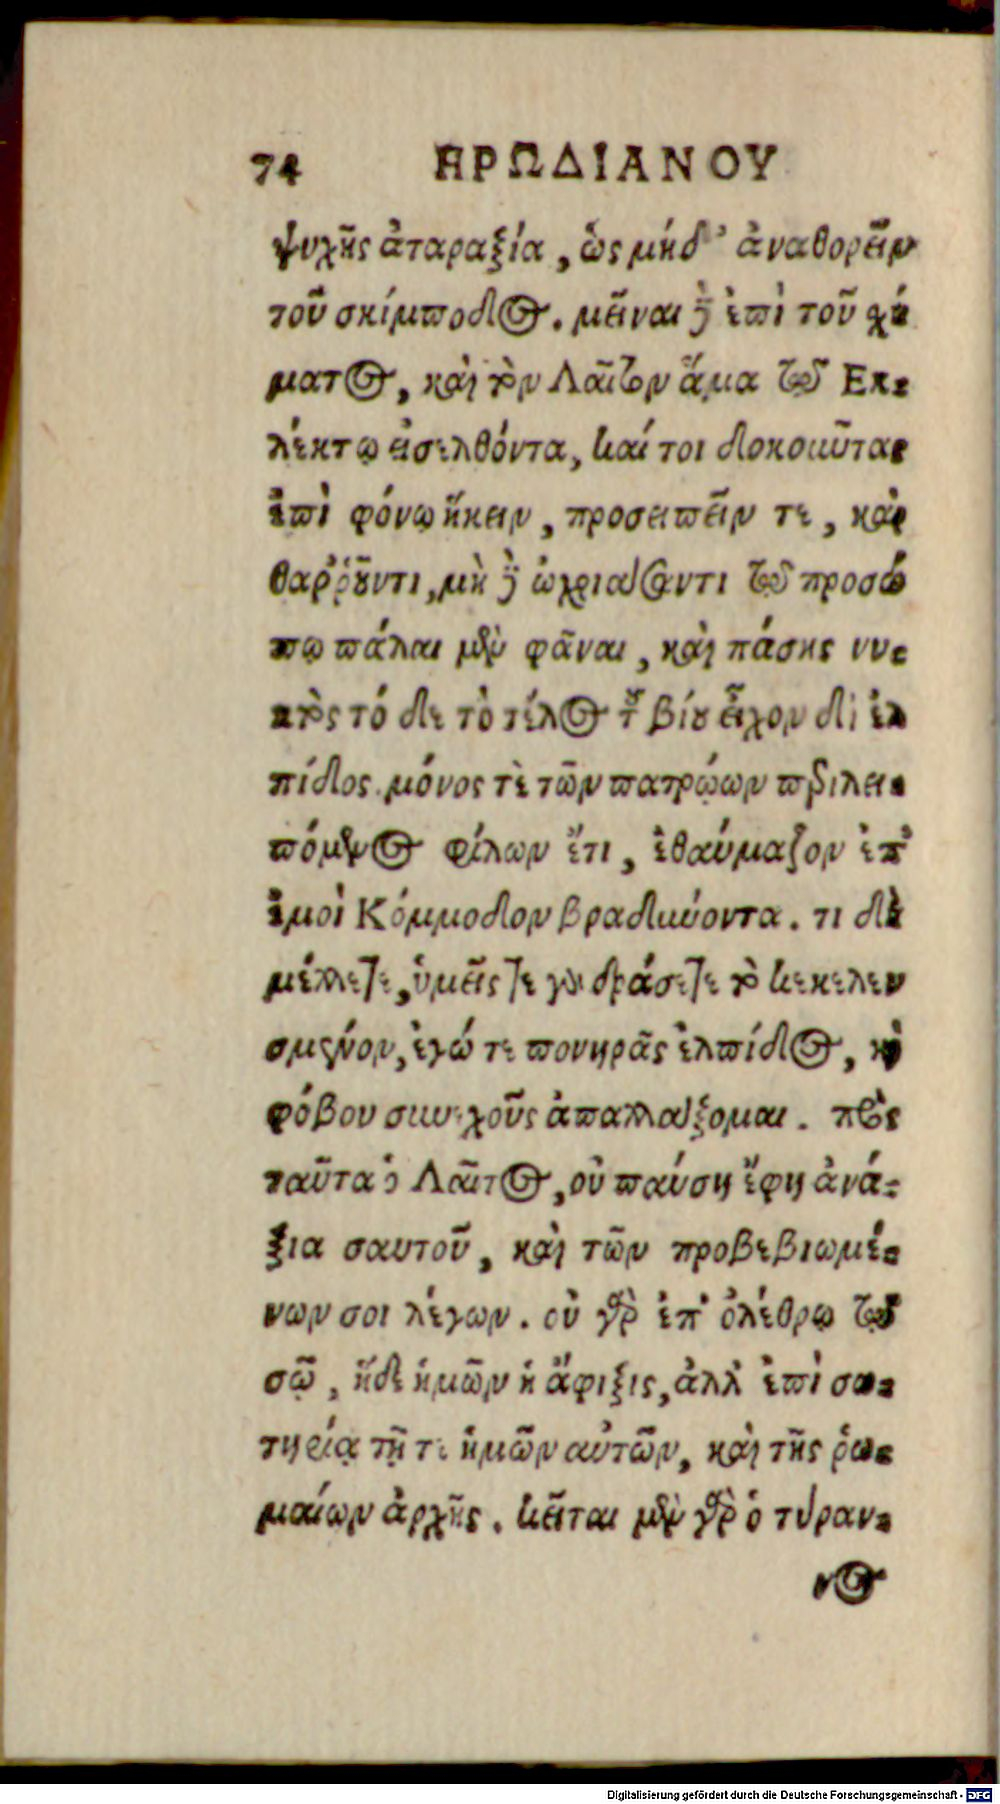 74 ΗΡΩΔΙΑΝΟΥ
ψυχῆς ἀταραξία, ὡς μήδ' ἀναθορεῖν
τοῦ σκίμποδος. μεῖναι δὲ ἐπὶ τοῦ χή-
ματος, καὶ τὸν Λαῖτον ἅμα τῷ Ἐκ-
λέκτῳ εἰσελθόντα, καί τοι δοκοῦντας
ἐπὶ φόνῳ ἥκειν, προσειπεῖν τε, καὶ
θαῤῥοῦντι, μὴ δὲ ὠχριάσαντι τῷ προσώ
πῳ πάλαι μὲν φᾶναι, καὶ πάσης νυ-
κτὸς τό δε τὸ τέλος τοῦ βίου εἶχον δι' ἐλ
πίδος. μόνος τὲ τῶν πατρῴων περιλει-
πόμενος φίλων ἔτι, ἐθαύμαζον ἐπ'
ἐμοὶ Κόμμοδον βραδύνοντα. τι δὲ
μέλλετε, ὑμεῖς τε γὰρ δράσετε τὸ κεκελευ
σμένον, ἐγώ τε πονηρᾶς ἐλπίδος, καὶ
φόβου συνεχοῦς ἀπαλλάξομαι. πρὸς
ταῦτα ὁ Λαῖτος, οὐ παύσῃ ἔφη ἀνά-
ξια σαυτοῦ, καὶ τῶν προβεβιωμέ-
νων σοι λέγων. οὐ γὰρ ἐπ' ὀλέθρῳ τῷ
σῷ, ἥδε ἡμῶν ἡ ἄφιξις, ἀλλ' ἐπὶ σω-
τηρίᾳ τῇ τε ἡμῶν αὐτῶν, καὶ τῆς ῥω-
μαίων ἀρχῆς. κεῖται μὲν γὰρ ὁ τύραν-
νος
Digitalisierung gefördert durch die Deutsche Forschungsgemeinschaft - DFG